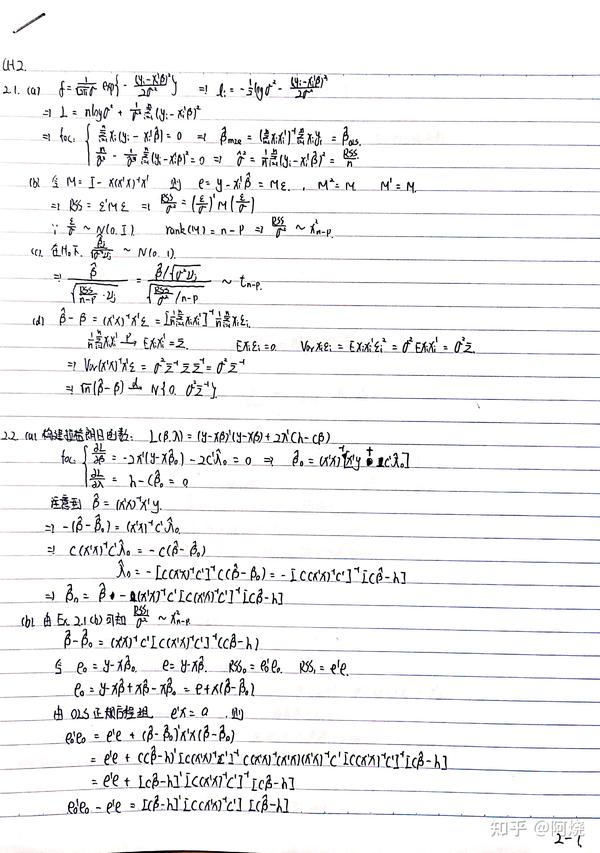 CH2.
2.1. (a) f = 1/(√2π σ) exp{ - (yi-xi'β)²/2σ² } ⇒ li = -½ log σ² - (yi-xi'β)²/2σ²
⇒ L = n log σ² + 1/σ² Σ(yi-xi'β)²
⇒ foc. { Σ xi(yi-xi'β) = 0 ⇒ β̂mle = (Σ xixi')⁻¹ Σ xiyi = β̂ols.
n/σ² - 1/σ⁴ Σ(yi-xi'β)² = 0 ⇒ σ̂² = 1/n Σ(yi-xi'β)² = RSS/n
(b) 令 M = I - X(X'X)⁻¹X' 则 e = y - xi'β̂ = Mε, M² = M M' = M.
⇒ RSS = ε'Mε ⇒ RSS/σ² = (ε/σ)' M (ε/σ)
∵ ε/σ ~ N(0, I) rank(M) = n-p ⇒ RSS/σ² ~ χ²n-p.
(c). 在H₀下, β̂j/√σ²νj ~ N(0, 1).
⇒ β̂ / √(RSS/n-p · νj) = (β̂/√σ²νj) / √(RSS/σ² /n-p) ~ tn-p.
(d) β̂ - β = (X'X)⁻¹X'ε = [1/n Σ xixi']⁻¹ 1/n Σ xiεi.
1/n Σ xixi' →p Exixi' = Σ. Exiεi = 0 Var xiεi = Exixi'εi² = σ²Exixi' = σ²Σ.
⇒ Var(X'X)⁻¹X'ε = σ²Σ⁻¹ΣΣ⁻¹ = σ²Σ⁻¹
⇒ √n(β̂-β) →d N{0, σ²Σ⁻¹}
2.2. (a) 构建拉格朗日函数: L(β,λ) = (y-Xβ)'(y-Xβ) + 2λ'(h-Cβ)
foc { ∂L/∂β = -2X'(y-Xβ̂₀) - 2C'λ̂₀ = 0 ⇒ β̂₀ = (X'X)⁻¹[X'y + C'λ̂₀]
∂L/∂λ = h - Cβ̂₀ = 0
注意到 β̂ = (X'X)⁻¹X'y.
⇒ -(β̂-β̂₀) = (X'X)⁻¹C'λ̂₀.
⇒ C(X'X)⁻¹C'λ̂₀ = -C(β̂-β̂₀)
λ̂₀ = -[C(X'X)⁻¹C']⁻¹C(β̂-β̂₀) = -[C(X'X)⁻¹C']⁻¹[Cβ̂-h]
⇒ β̂₀ = β̂ - (X'X)⁻¹C'[C(X'X)⁻¹C']⁻¹[Cβ̂-h]
(b). 由 Ex. 2.1(b)可知 RSS₁/σ² ~ χ²n-p.
β̂-β̂₀ = (X'X)⁻¹C'[C(X'X)⁻¹C']⁻¹(Cβ̂-h)
令 e₀ = y-Xβ̂₀. e = y-Xβ̂. RSS₀ = e₀'e₀. RSS₁ = e'e.
e₀ = y-Xβ̂+Xβ̂-Xβ̂₀ = e+X(β̂-β̂₀)
由 OLS 正规方程组, e'X = 0, 则
e₀'e₀ = e'e + (β̂-β̂₀)'X'X(β̂-β̂₀)
= e'e + (Cβ̂-h)'[C(X'X)⁻¹C']⁻¹C(X'X)⁻¹(X'X)(X'X)⁻¹C'[C(X'X)⁻¹C']⁻¹[Cβ̂-h]
= e'e + [Cβ̂-h]'[C(X'X)⁻¹C']⁻¹[Cβ̂-h]
e₀'e₀ - e'e = [Cβ̂-h]'[C(X'X)⁻¹C'][Cβ̂-h]
知乎 @阿烧
2-1